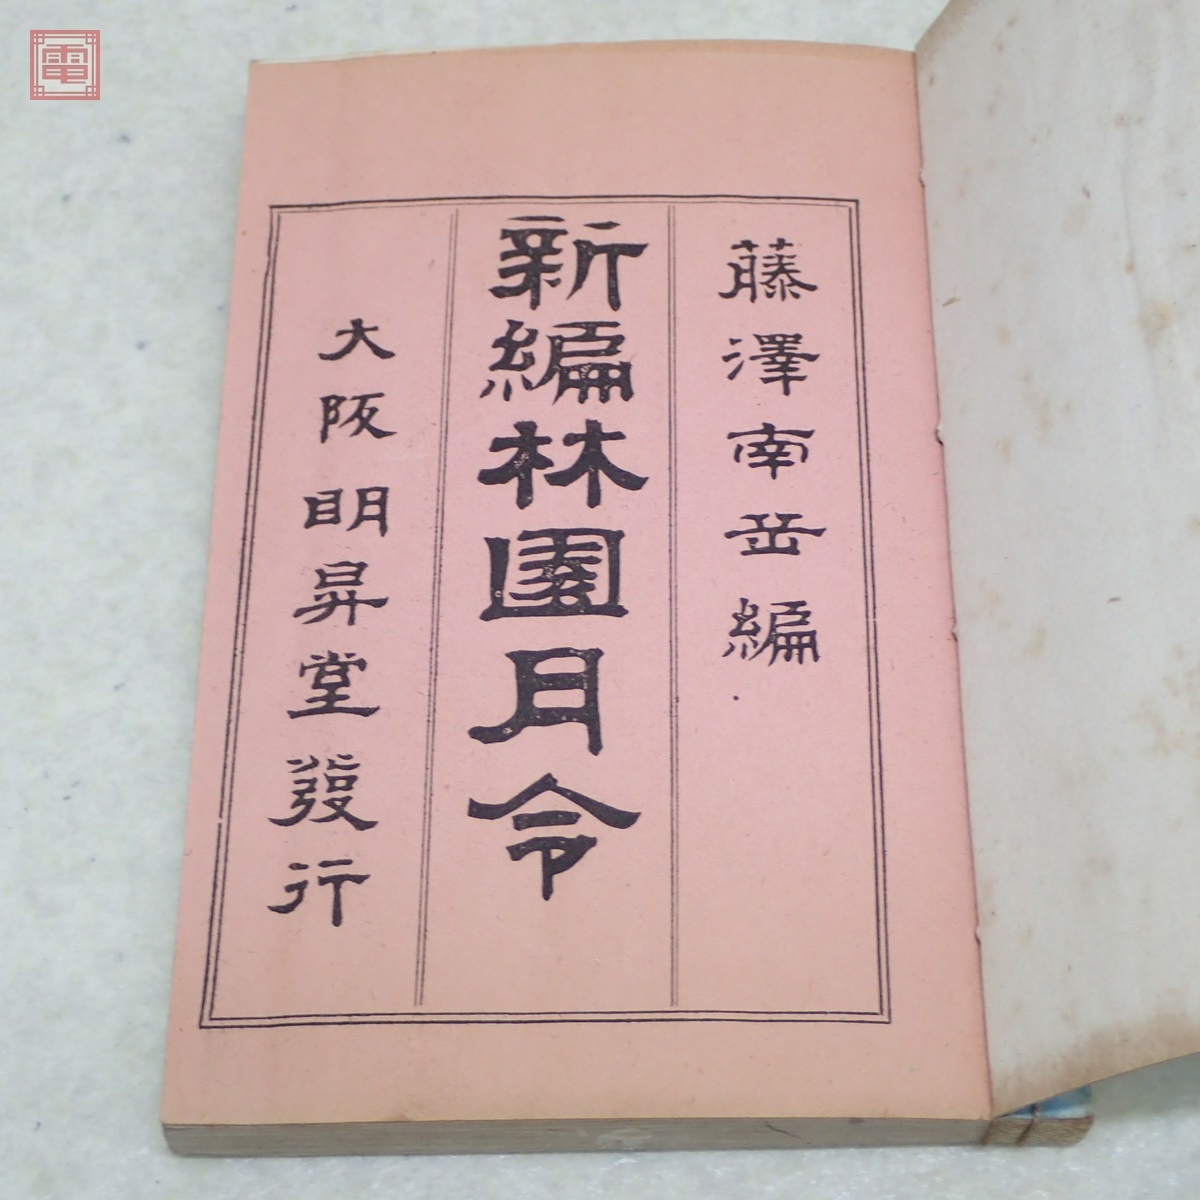 藤澤南岳編
新編林園月令
大阪明昇堂發行
電